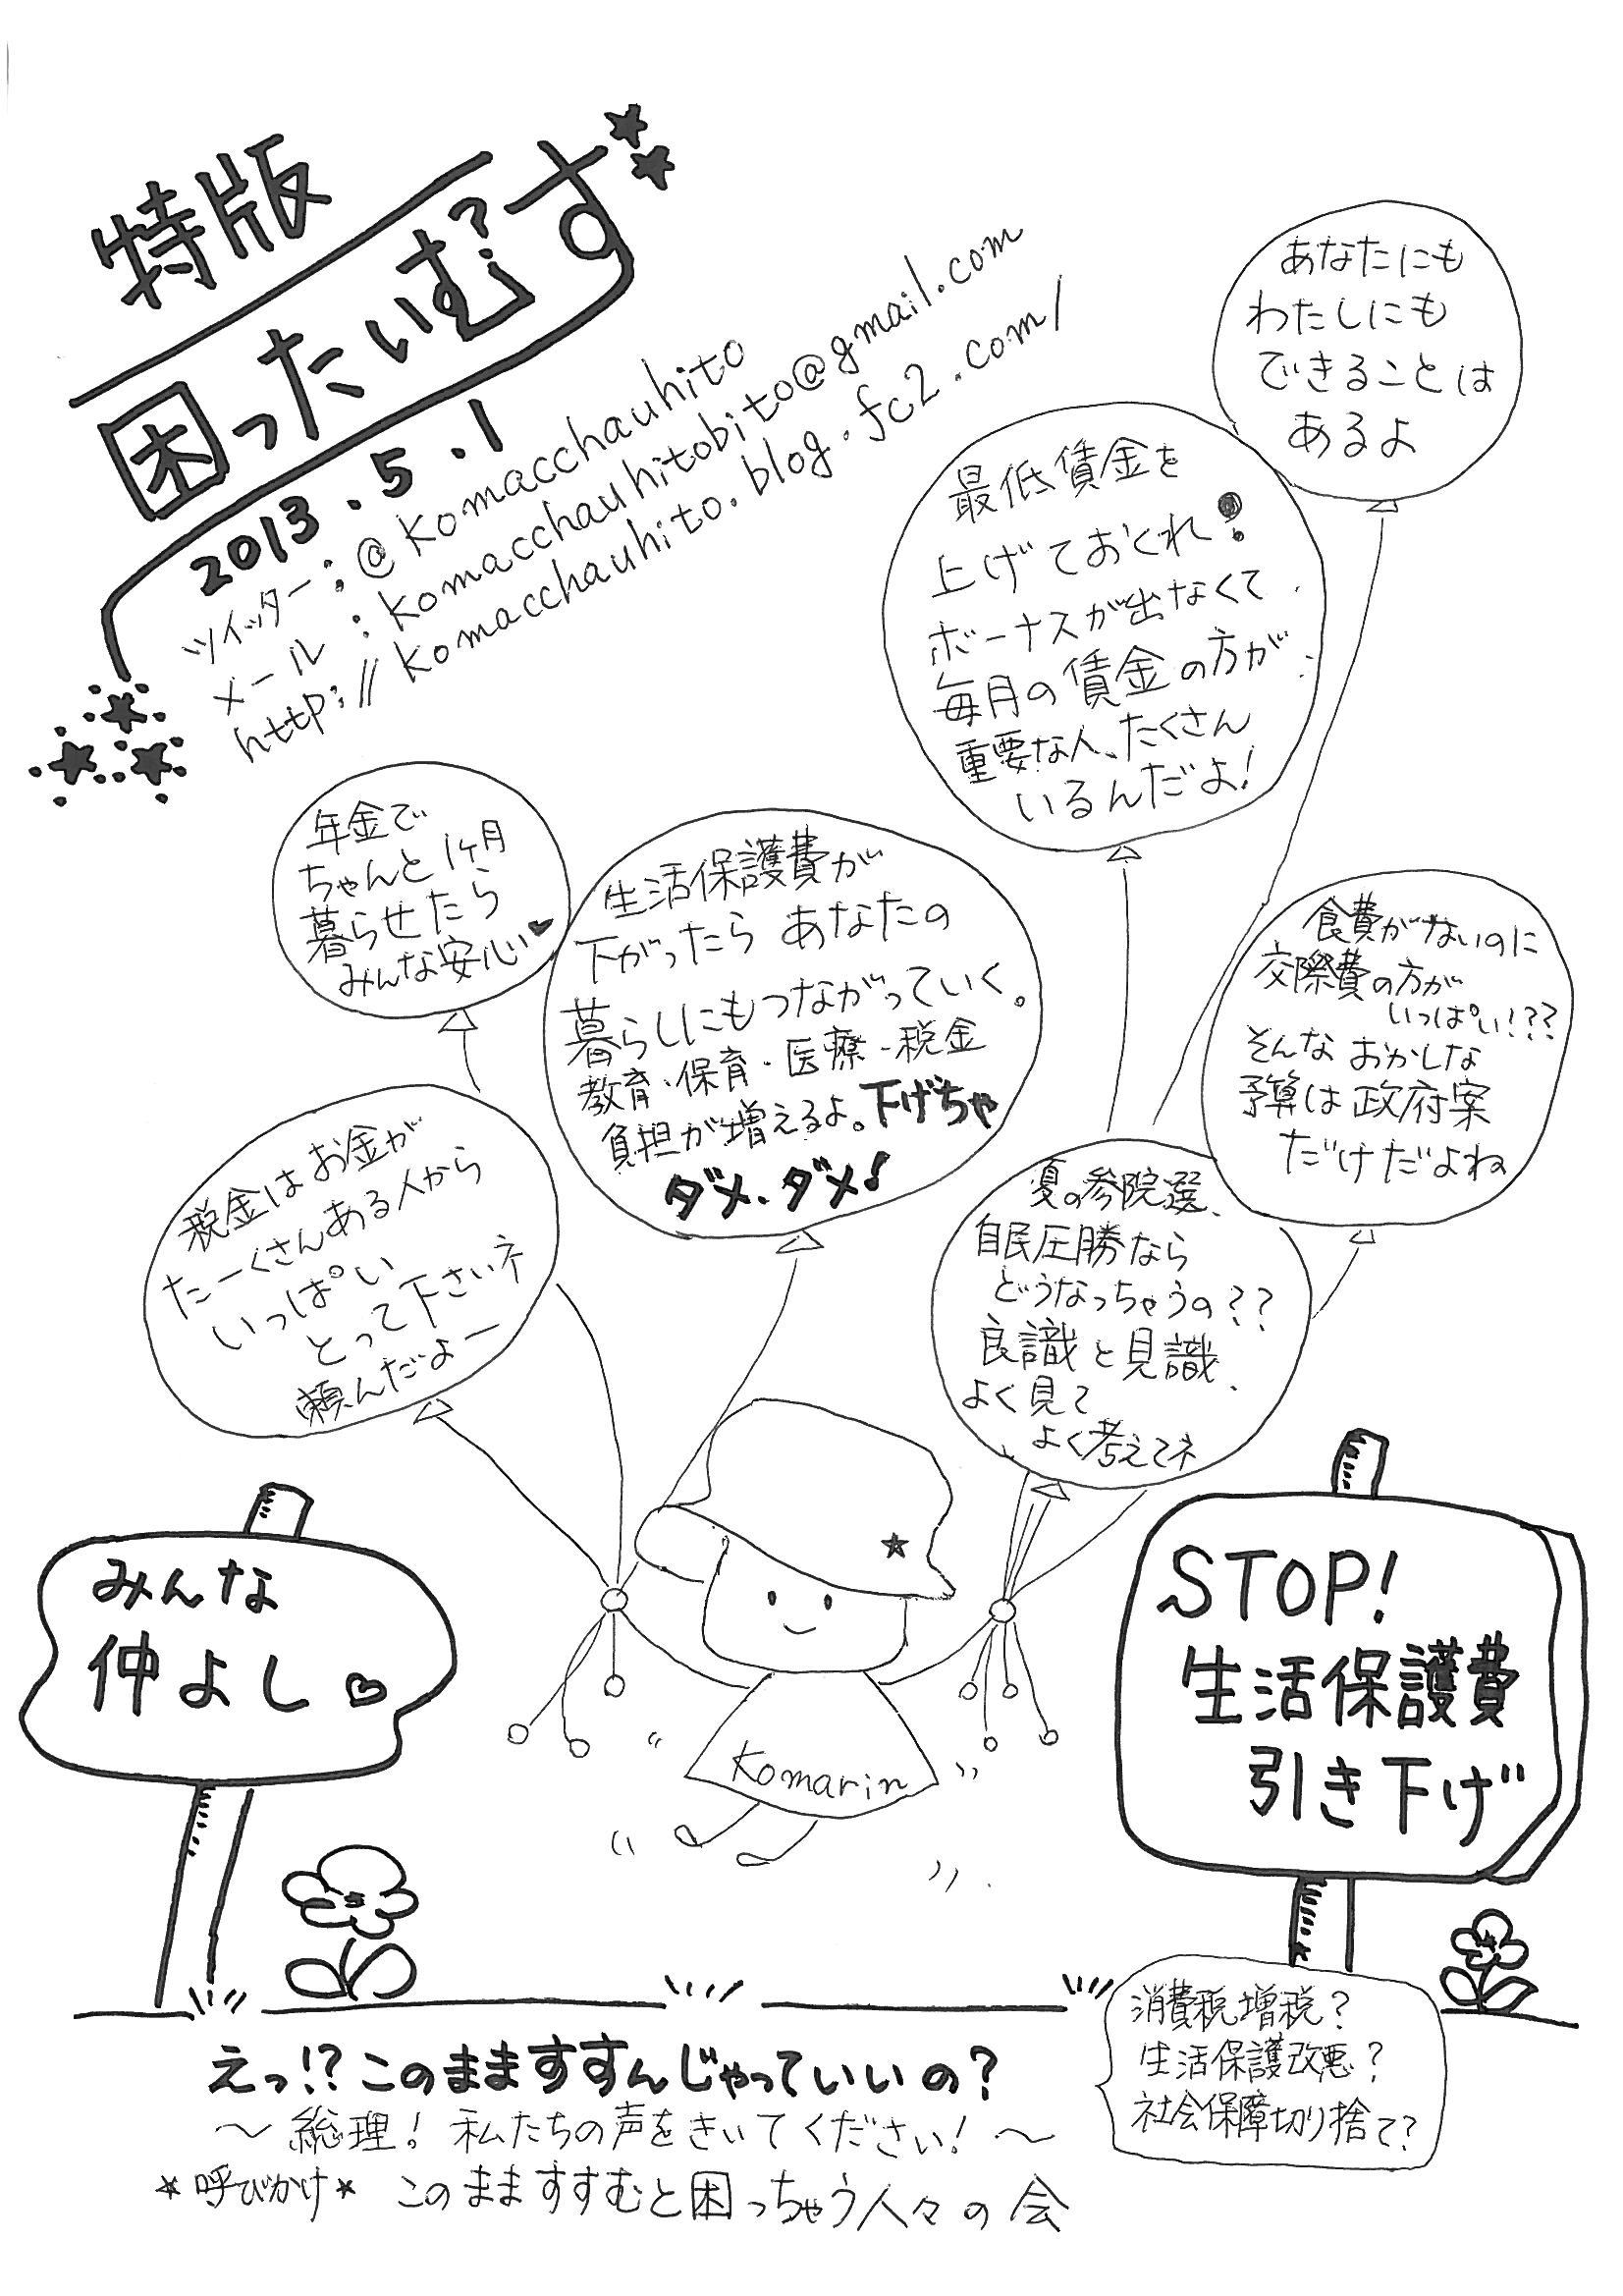 特版
困ったいむ?す
2013.5.1
ツイッター:@komacchauhito
メール:komacchauhitobito@gmail.com
http://komacchauhito.blog.fc2.com/
あなたにも
わたしにも
できることは
あるよ
最低賃金を
上げておくれ!
ボーナスが出なくて
毎月の賃金の方が
重要な人、たくさん
いるんだよ!
年金で
ちゃんと1ヶ月
暮らせたら
みんな安心♥
生活保護費が
下がったら あなたの
暮らしにもつながっていく。
教育・保育・医療・税金
負担が増えるよ。下げちゃ
ダメ、ダメ!
食費がないのに
交際費の方が
いっぱい!??
そんな おかしな
予算は政府案
だけだよね
税金はお金が
たーくさんある人から
いっぱい
とって下さいネ
頼んだよー
夏の参院選、
自民圧勝なら
どうなっちゃうの??
良識と見識、
よく見て
よく考えてネ
みんな
仲よし♡
Komarin
STOP!
生活保護費
引き下げ
消費税増税?
生活保護改悪?
社会保障切り捨て?
えっ!?このまますすんじゃっていいの?
〜総理!私たちの声をきいてください!〜
★呼びかけ★ このまますすむと困っちゃう人々の会